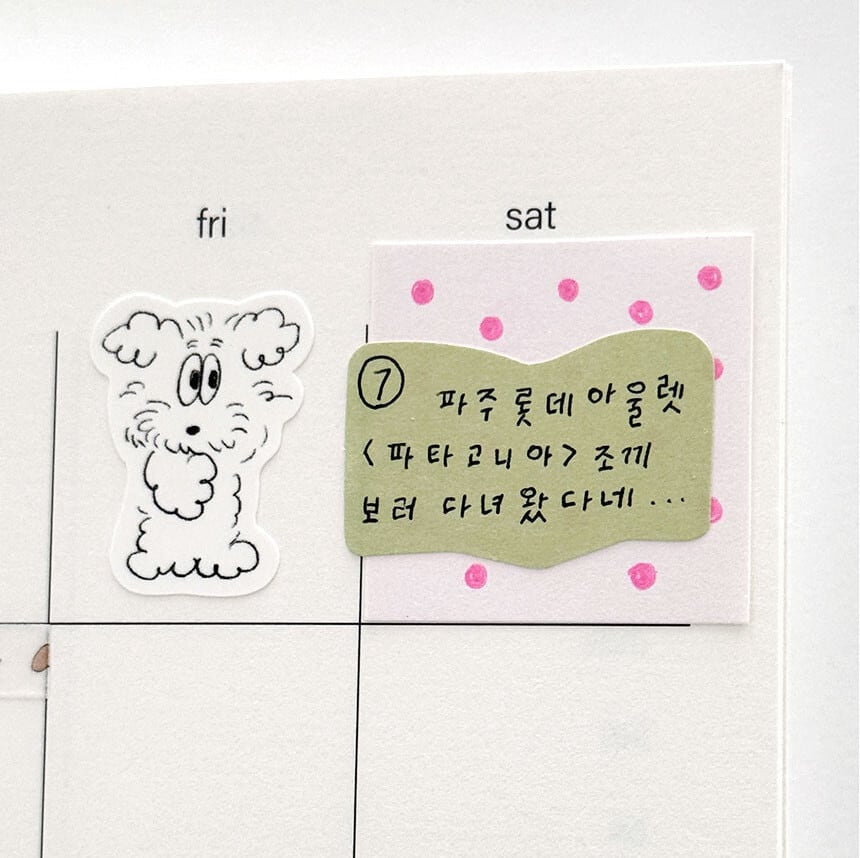 fri
sat
⑦ 파주 롯데 아울렛
<파타고니아> 조끼
보러 다녀왔다네...